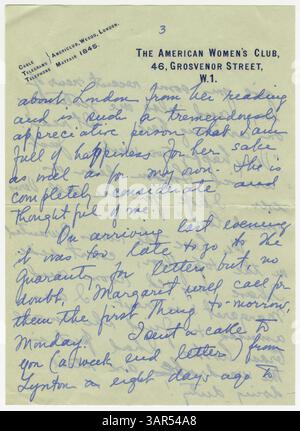 3
CABLE
TELEGRAMS
TELEPHONE
AMERICLUB, WESDO, LONDON.
MAYFAIR 1845.
THE AMERICAN WOMEN'S CLUB,
46, GROSVENOR STREET,
W.1.
about London from her reading
and is such a tremendously
appreciative person that I am
full of happiness for her sake
as well as for my own. She is
completely considerate and
thoughtful of me.
On arriving last evening
it was too late to go to the
Guaranty for letters but, no
doubt, Margaret will call for
them the first thing to-morrow,
Monday. I sent a cable to
you (a week end letter) from
Lynton an eight days ago to
alamy
Image ID: 3AR54A8
www.alamy.com